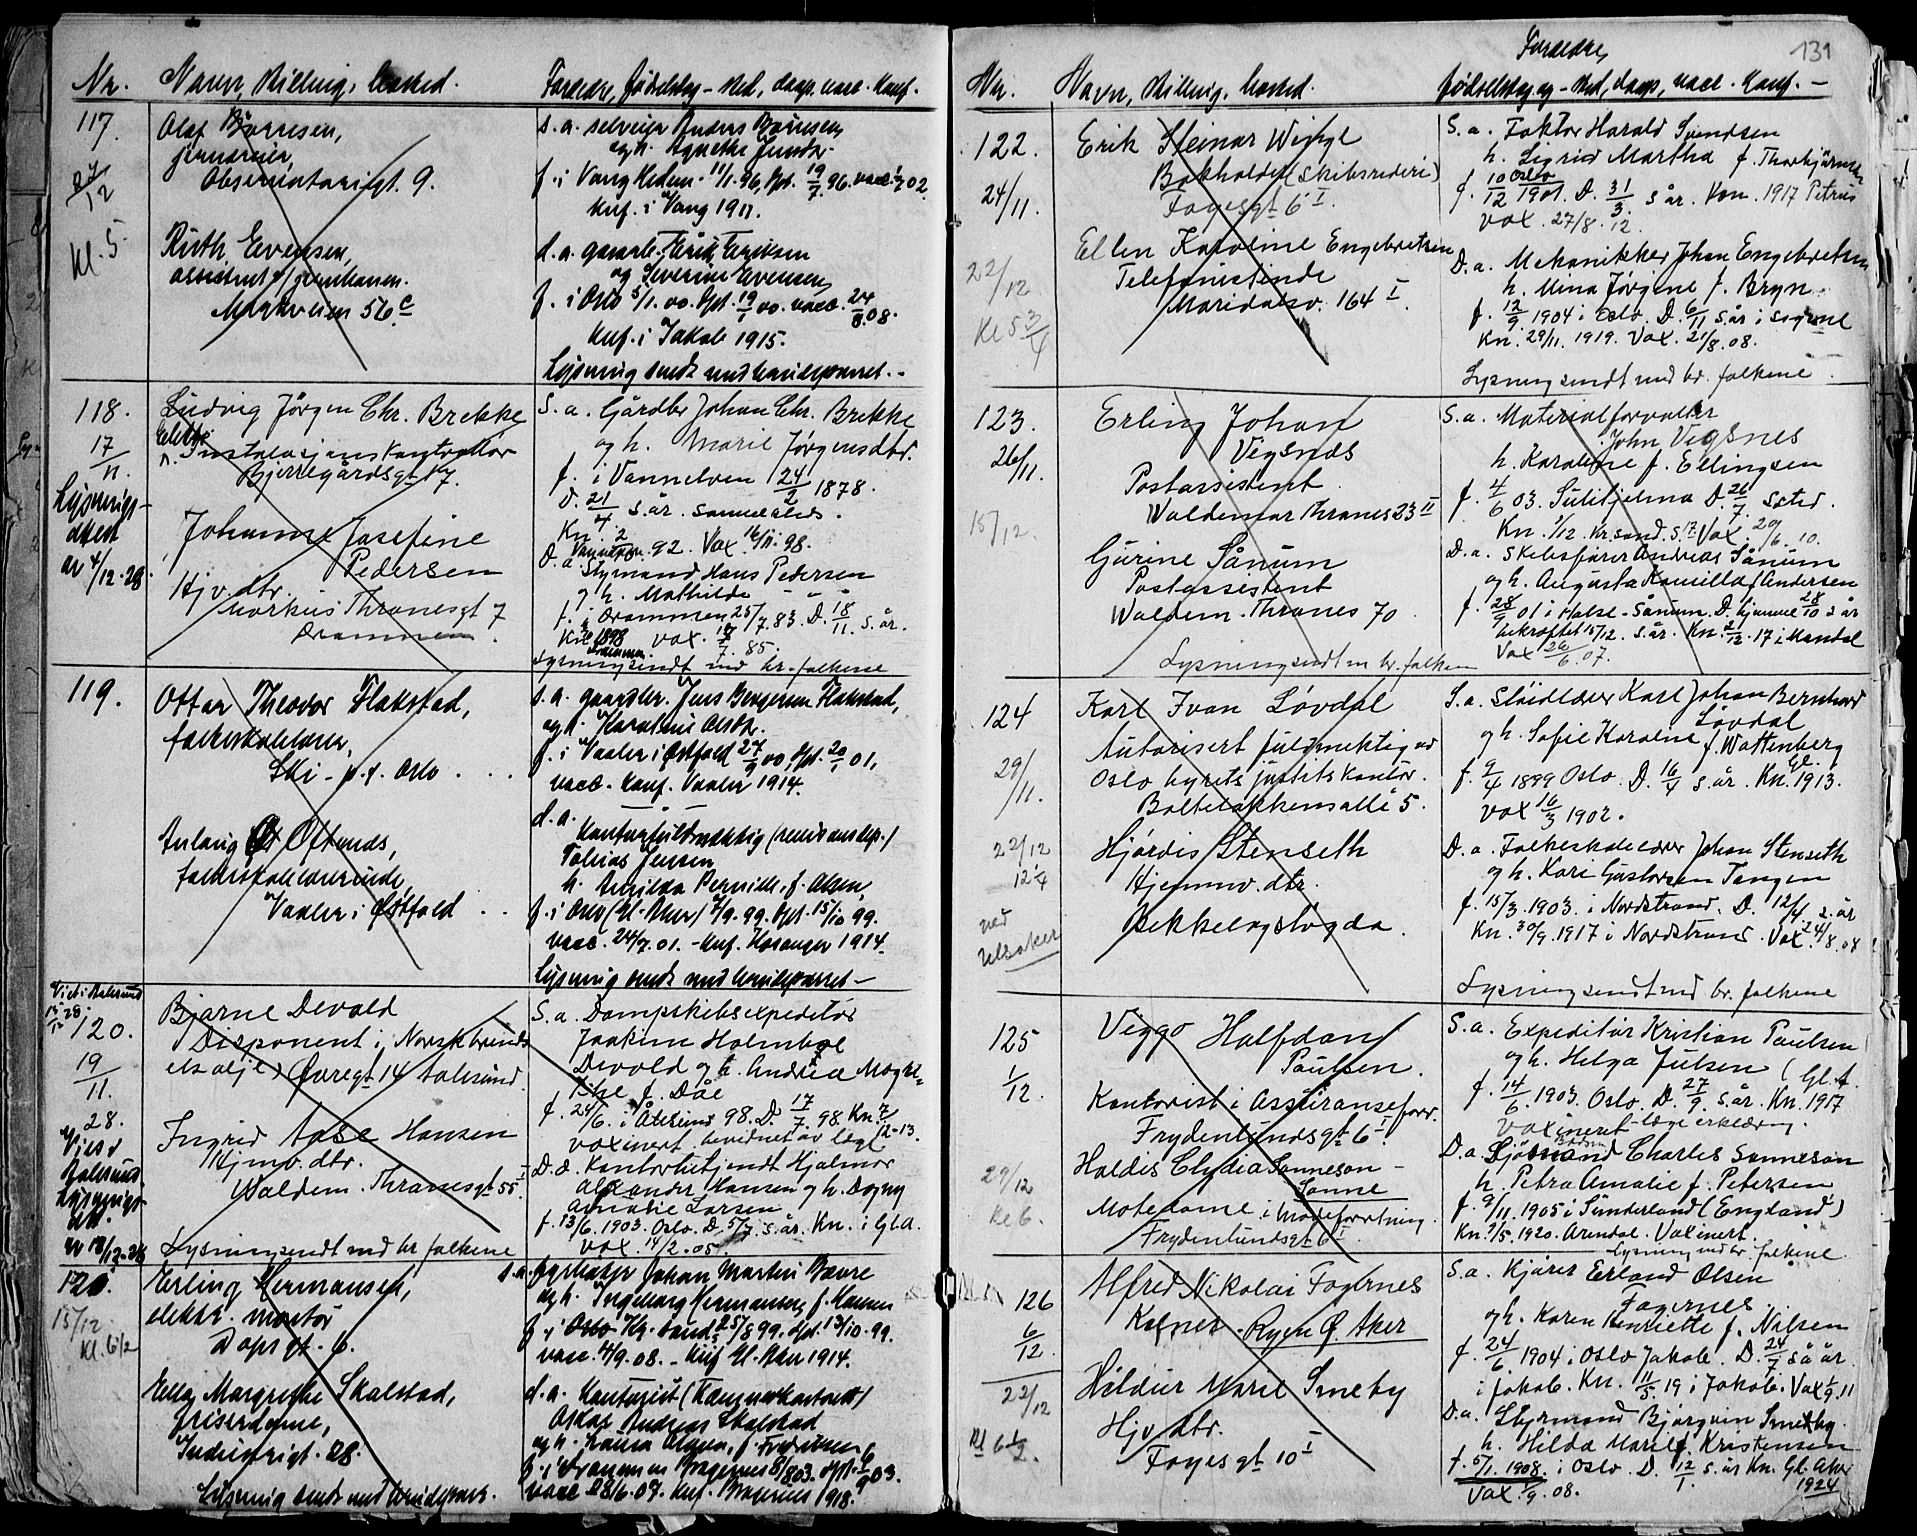 Nr. Navn, stilling, bosted. Forældre, fødselsdag - sted, daap, vacc. Konf.
117. Olaf Børresen,
Observatorigt. 9.
27/12
Kl. 5.
s. a. selveier Anders Børresen
og h. Agnethe
f. i Vang Hedem. 11/1. 96, dpt. 19/7. 96. vacc. 02
Knf. i Vang 1911.
Ruth Evensen,
assistent
56 c
d. a. Erik Eriksen
og Severine Evensen
f. i Oslo 5/1. 00. dpt. 19/1 00. vacc. 24/8. 08.
Knf. i Jakob 1915.
Lysning sendt med brudeparret. -
118.
17/11.
Lysnings-
attest
av 4/12. 28.
Ludvig Jørgen Chr. Brekke
Instalasjonskontrollør
Bjerregårdsgt 17.
S. a. Gårdbr Johan Chr. Brekke
og h. Marie Jørgensdtr.
f. i Vannelven 24/2 1878.
D. 21/4 s. år. sammesteds.
92. Vax. 16/11. 98.
Johanne Josefine
Pedersen
Hjv. dtr.
Markus Thranesgt 7
Drammen.
D. a. Styrmand Hans Pedersen
og h. Mathilde
f. i Drammen 25/7. 83. D. 18/11. s. år.
Kn. 1898 vax. 85.
Drammen.
Lysning sendt med br. folkene
119.
Ottar Theodor Flakstad,
folkeskolelærer,
Ski - p. t. Oslo.
s. a. gaardbr. Jens Flakstad,
og h. Karoline Olsdtr.
f. i Vaaler i Østfold 27/9 00, dpt. 20/1 01,
vacc. Konf. Vaaler 1914.
Aslaug Oftenes,
folkeskolelærerinde,
Vaaler i Østfold
d. a.
Tobias Jensen
h. Amilda Pernille, f. Olsen,
f. i Oslo (Gl. Aker) 7/9. 99. dpt. 15/10 99.
vacc. 24/9. 01. - Knf. 1914.
Lysning sendt med brudeparret -
Viet i Aalesund
15/12 28
120.
19/11.
28.
Viet i
Aalesund
Lysnings
att.
av 18/12-28
Bjarne Devold
Disponent i Norsk brænd-
selsolje, Øvregt 14 Aalesund.
S. a. Dampskibsexpeditør
Joakim Holmboe
Devold og h. Andrea Magre-
the f. Dåe
f. 24/6. i Ålesund 98. D. 17/7. 98. Kn. 7/12-13.
voxinert. bevidnet av læge
Ingrid Aase Hansen
Hjmv. dtr.
Waldem. Thranesgt 55 I
D. a. Kontorbetjendt Hjalmar
Alexander Hansen og h. Dagny
Amalie Larsen
f. 13/6. 1903. Oslo. D. 5/7. s. år. Kn. i Gl. A.
vax. 14/2. 05.
Lysning sendt med br folkene
121.
15/12.
Kl. 6 1/2
Erling Hermansen,
elektr. montør
Dopsgt. 6.
s. a. fyrbøter Johan Martin Bævre
og h. Ingeborg Hermansen, f. Hansen
f. i Oslo Kr. sand. 25/8 99. dpt. 15/10. 99.
vacc. 4/9. 08. - Knf. Gl. Aker 1914.
Ella Margrethe Skalstad,
frisørdame,
Industrigt. 28.
d. a. Kontorist (Kæmnerkontoret)
Oskar Andreas Skalstad
og h. Laura Olava, f. Fredriksen
f. i Drammen Bragernes 8/8 03. dpt. 6/9 03.
vacc 28/6. 07. Knf. Bragernes 1918.
Lysning sendt med brudeparr.
131
Nr. Navn, stilling, bosted. Forældre,
fødselsdag og - sted, daap, vacc. Konf. -
122.
24/11.
22/12
Kl 5 3/4
Erik Steinar Wighl
Bokholder (skibsrederi)
Fagesgt 6 I.
S. a. Faktor Harald Svendsen
h. Sigrid Martha f. Thorbjørnsen
f. 10/12 Oslo 1901. D. 31/3 s år. Kon. 1917 Petrus
vax. 27/8. 12.
Ellen Karoline Engebretsen
Telefonistinde
Maridalsv. 164 I
D. a. Mekanikker Johan Engebretsen
h. Mina Jørgine f. Bryn
f. 12/9. 1904 i Oslo. D. 6/11 s. år i Sagene
Kn. 29/11. 1919. Vax. 21/8. 08.
Lysning sendt med br. folkene.
123.
26/11.
15/12.
Erling Johan
Vigsnes
Postassistent.
Waldemar Thranes 23 II
S. a. Materialforvalter
John Vigsnes
h. Karoline f. Ellingsen
f. 4/6 03. Sulitjelma D. 26/7. s sted.
Kn. 1/12. Kr. sand. S. 17. Vax. 20/6. 10.
Gurine Sånum
Postassistent
Waldem. Thranes 70
D. a. Skibsfører Andreas Sånum
og h. Augusta Kamilla f Andersen
f. 28/9 01 i Halse - Sånum. D. hjemme 28/10 s år
bekræftet 15/12. s. år. Kn. 2/12. 17 i Mandal
Vax 26/6. 07.
Lysning sendt m br. folken
124
29/11.
22/12
12 1/4
ved
Ulsaker
Karl Ivan Løvdal
Autorisert fuldmektig ved
Oslo byrets justitskontor.
Bolteløkkensalle 5.
S. a. Sløidlærer Karl Johan Bernhard
Løvdal
og h. Sofie Karoline f. Wattenberg
f. 9/4 1899 Oslo. D. 16/4 s. år. Kn. Gl. 1913.
vax 16/3 1902.
Hjørdis Stenseth
Hjemmv. dtr.
Bekkelagshøgda.
D. a. Folkeskolelærer Johan Stenseth
og h. Kari Gustavsen Tangen
f. 15/3. 1903. i Nordstrand. D. 12/4. s. år
Kn. 30/9. 1917 i Nordstrand. Vax. 24/8. 08
Lysning sendt med br. folkene
125
1/12.
29/12
Kl 6.
Viggo Halfdan
Paulsen.
Kontorist i Assuranseforr.
Frydenlundsgt 6 I.
S. a. Expeditør Kristian Paulsen
og h. Helga Julsen (Gl. A.
f. 14/6. 1903. Oslo. D. 27/9. s. år. Kn. 1917
Voxineret - læge erklæring.
Haldis Clydia Sønneson -
Sønne
Motedame i moteforretning.
Frydenlundsgt 6 I
D. a. Sjømand Charles Sønneson
h. Petra Amalie f. Petersen
f. 9/11. 1905 i Sunderland (England)
Kn. 9/5. 1920. Arendal. Vaxinert.
Lysning med br. folkene.
126
6/12.
22/12
Kl 6 1/2.
Alfred Nikolai Fagernes
Kelner. Ryen Ø. Aker
S. a. Kjører Erland Olsen
Fagernes.
og h. Karen Henriette f. Nilsen
f. 24/6. 1904 i Oslo Jakob. D. 24/7. så år.
i Jakob. Kn. 11/5. 19 i Jakob. Vax 1/9. 11
Hildur Marie Smeby
Hjv dtr.
Fagesgt 10 I
D. a. Styrmand Bjørgvin Smeby
h. Hilda Marie f. Kristensen
f. 5/1. 1908. i Oslo. D. 12/1. s. år Kn. Gl. Aker
Vax. 1/9. 08. 1924